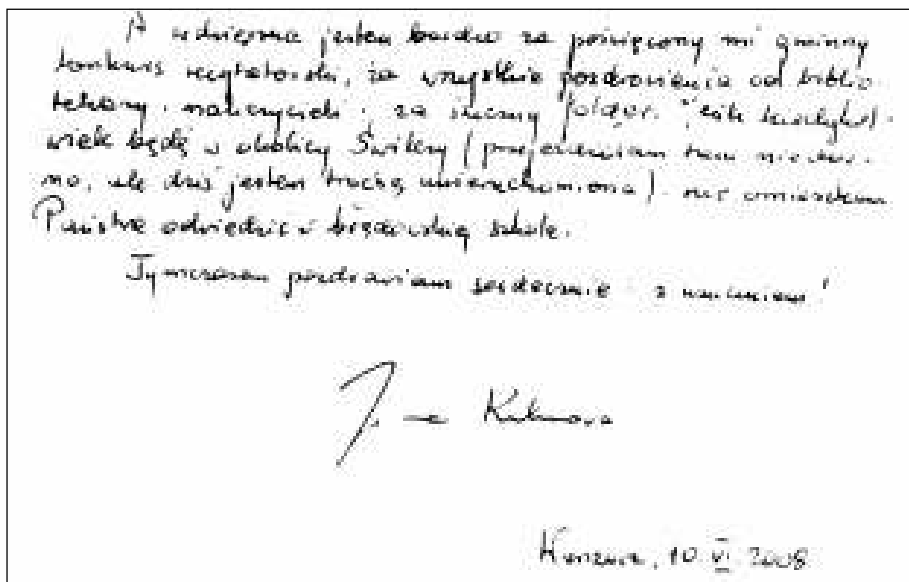 A wdzięczna jestem bardzo za poświęcony mi gminny
konkurs recytatorski, za wszystkie pozdrowienia od biblio-
tekarzy i nauczycieli i za śliczny folder. Jeśli kiedykol-
wiek będę w okolicy (przejeżdżałam tam niedaw-
no, ale dziś jestem trochę unieruchomiona) - nie omieszkam
Państwa odwiedzić i szkołę.
Tymczasem pozdrawiam serdecznie - z uściskiem!
Kulmowa
Warszawa, 10 VI 2008